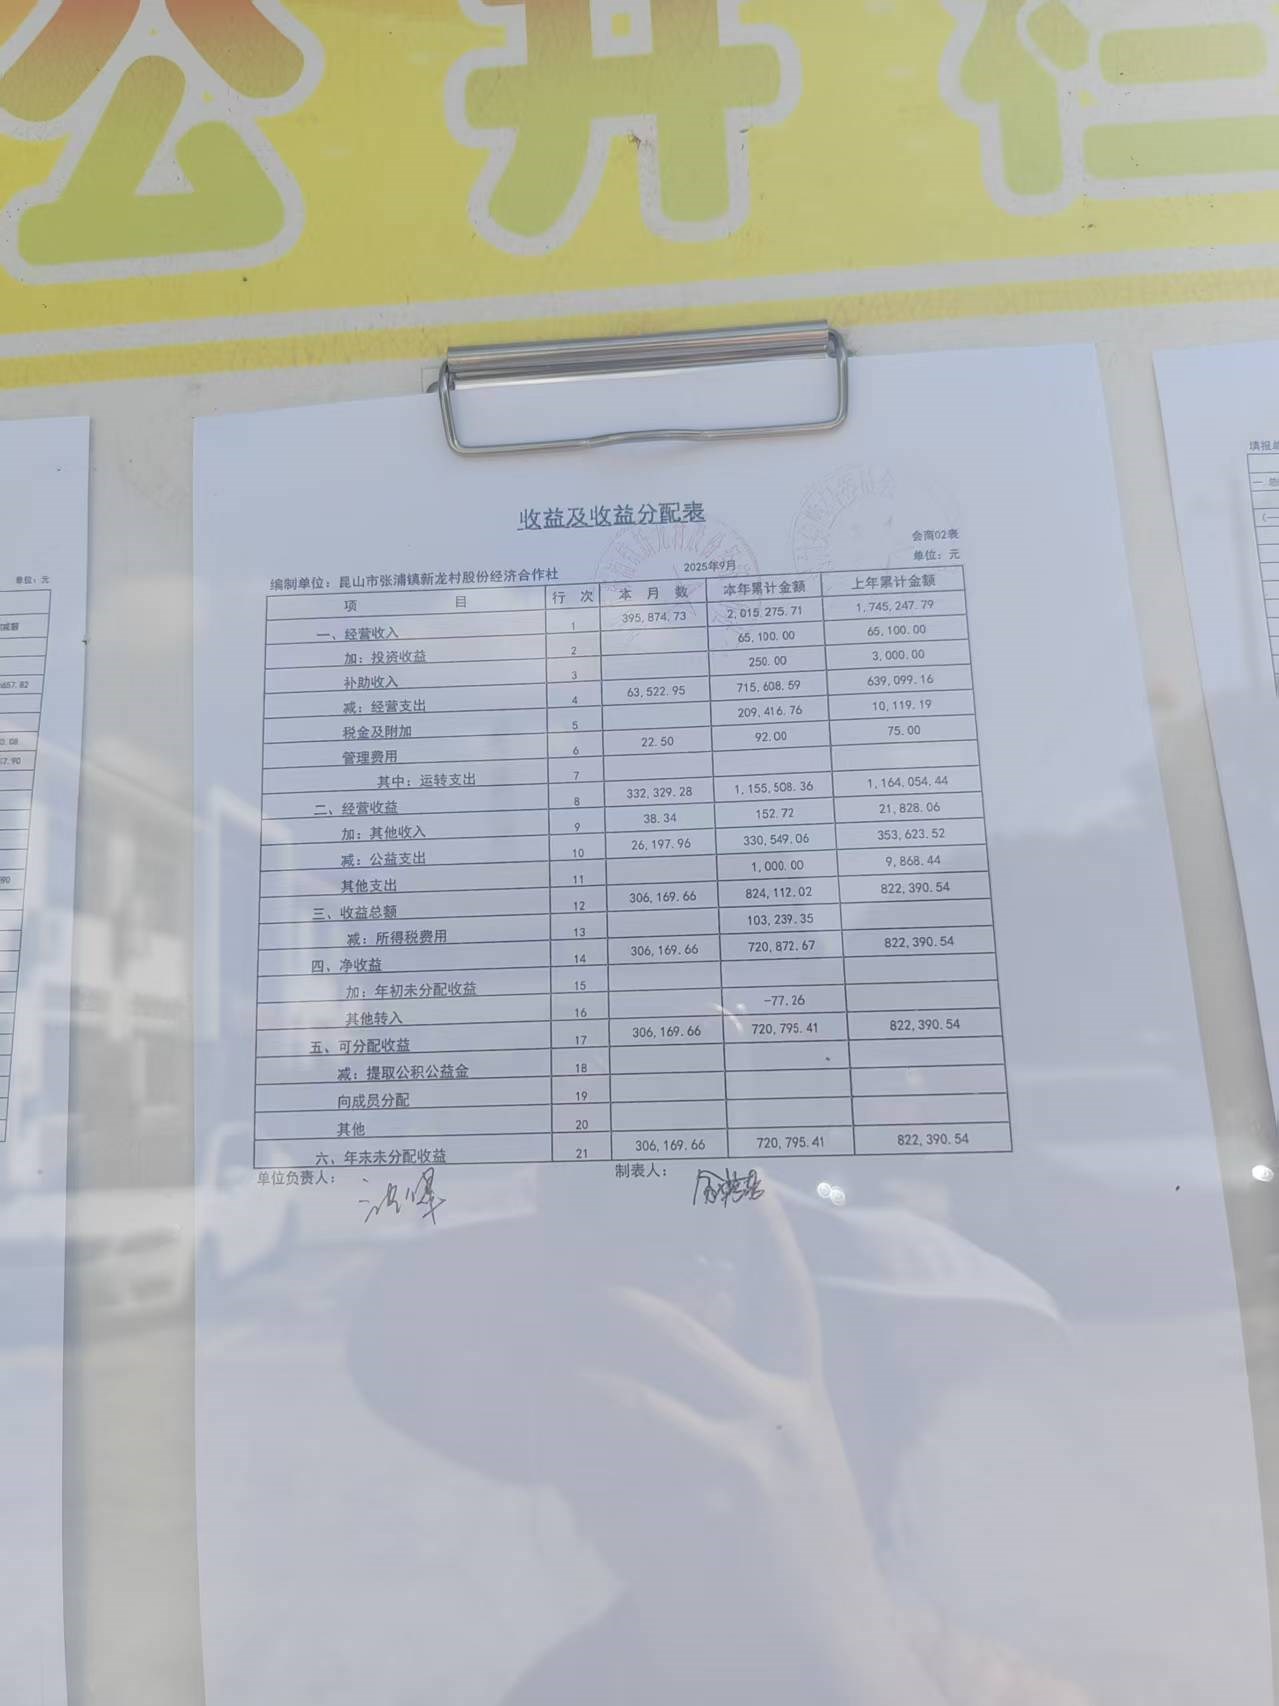 公开栏
收益及收益分配表
会商02表
编制单位：昆山市张浦镇新龙村股份经济合作社 2025年9月 单位：元
项 目 行 次 本 月 数 本年累计金额 上年累计金额
一、经营收入 1 395,874.73 2,015,275.71 1,745,247.79
加：投资收益 2 65,100.00 65,100.00
补助收入 3 250.00 3,000.00
减：经营支出 4 63,522.95 715,608.59 639,099.16
税金及附加 5 209,416.76 10,119.19
管理费用 6 22.50 92.00 75.00
其中：运转支出 7
二、经营收益 8 332,329.28 1,155,508.36 1,164,054.44
加：其他收入 9 38.34 152.72 21,828.06
减：公益支出 10 26,197.96 330,549.06 353,623.52
其他支出 11 1,000.00 9,868.44
三、收益总额 12 306,169.66 824,112.02 822,390.54
减：所得税费用 13 103,239.35
四、净收益 14 306,169.66 720,872.67 822,390.54
加：年初未分配收益 15
其他转入 16 -77.26
五、可分配收益 17 306,169.66 720,795.41 822,390.54
减：提取公积公益金 18
向成员分配 19
其他 20
六、年末未分配收益 21 306,169.66 720,795.41 822,390.54
单位负责人： 制表人：
单位：元
填报单